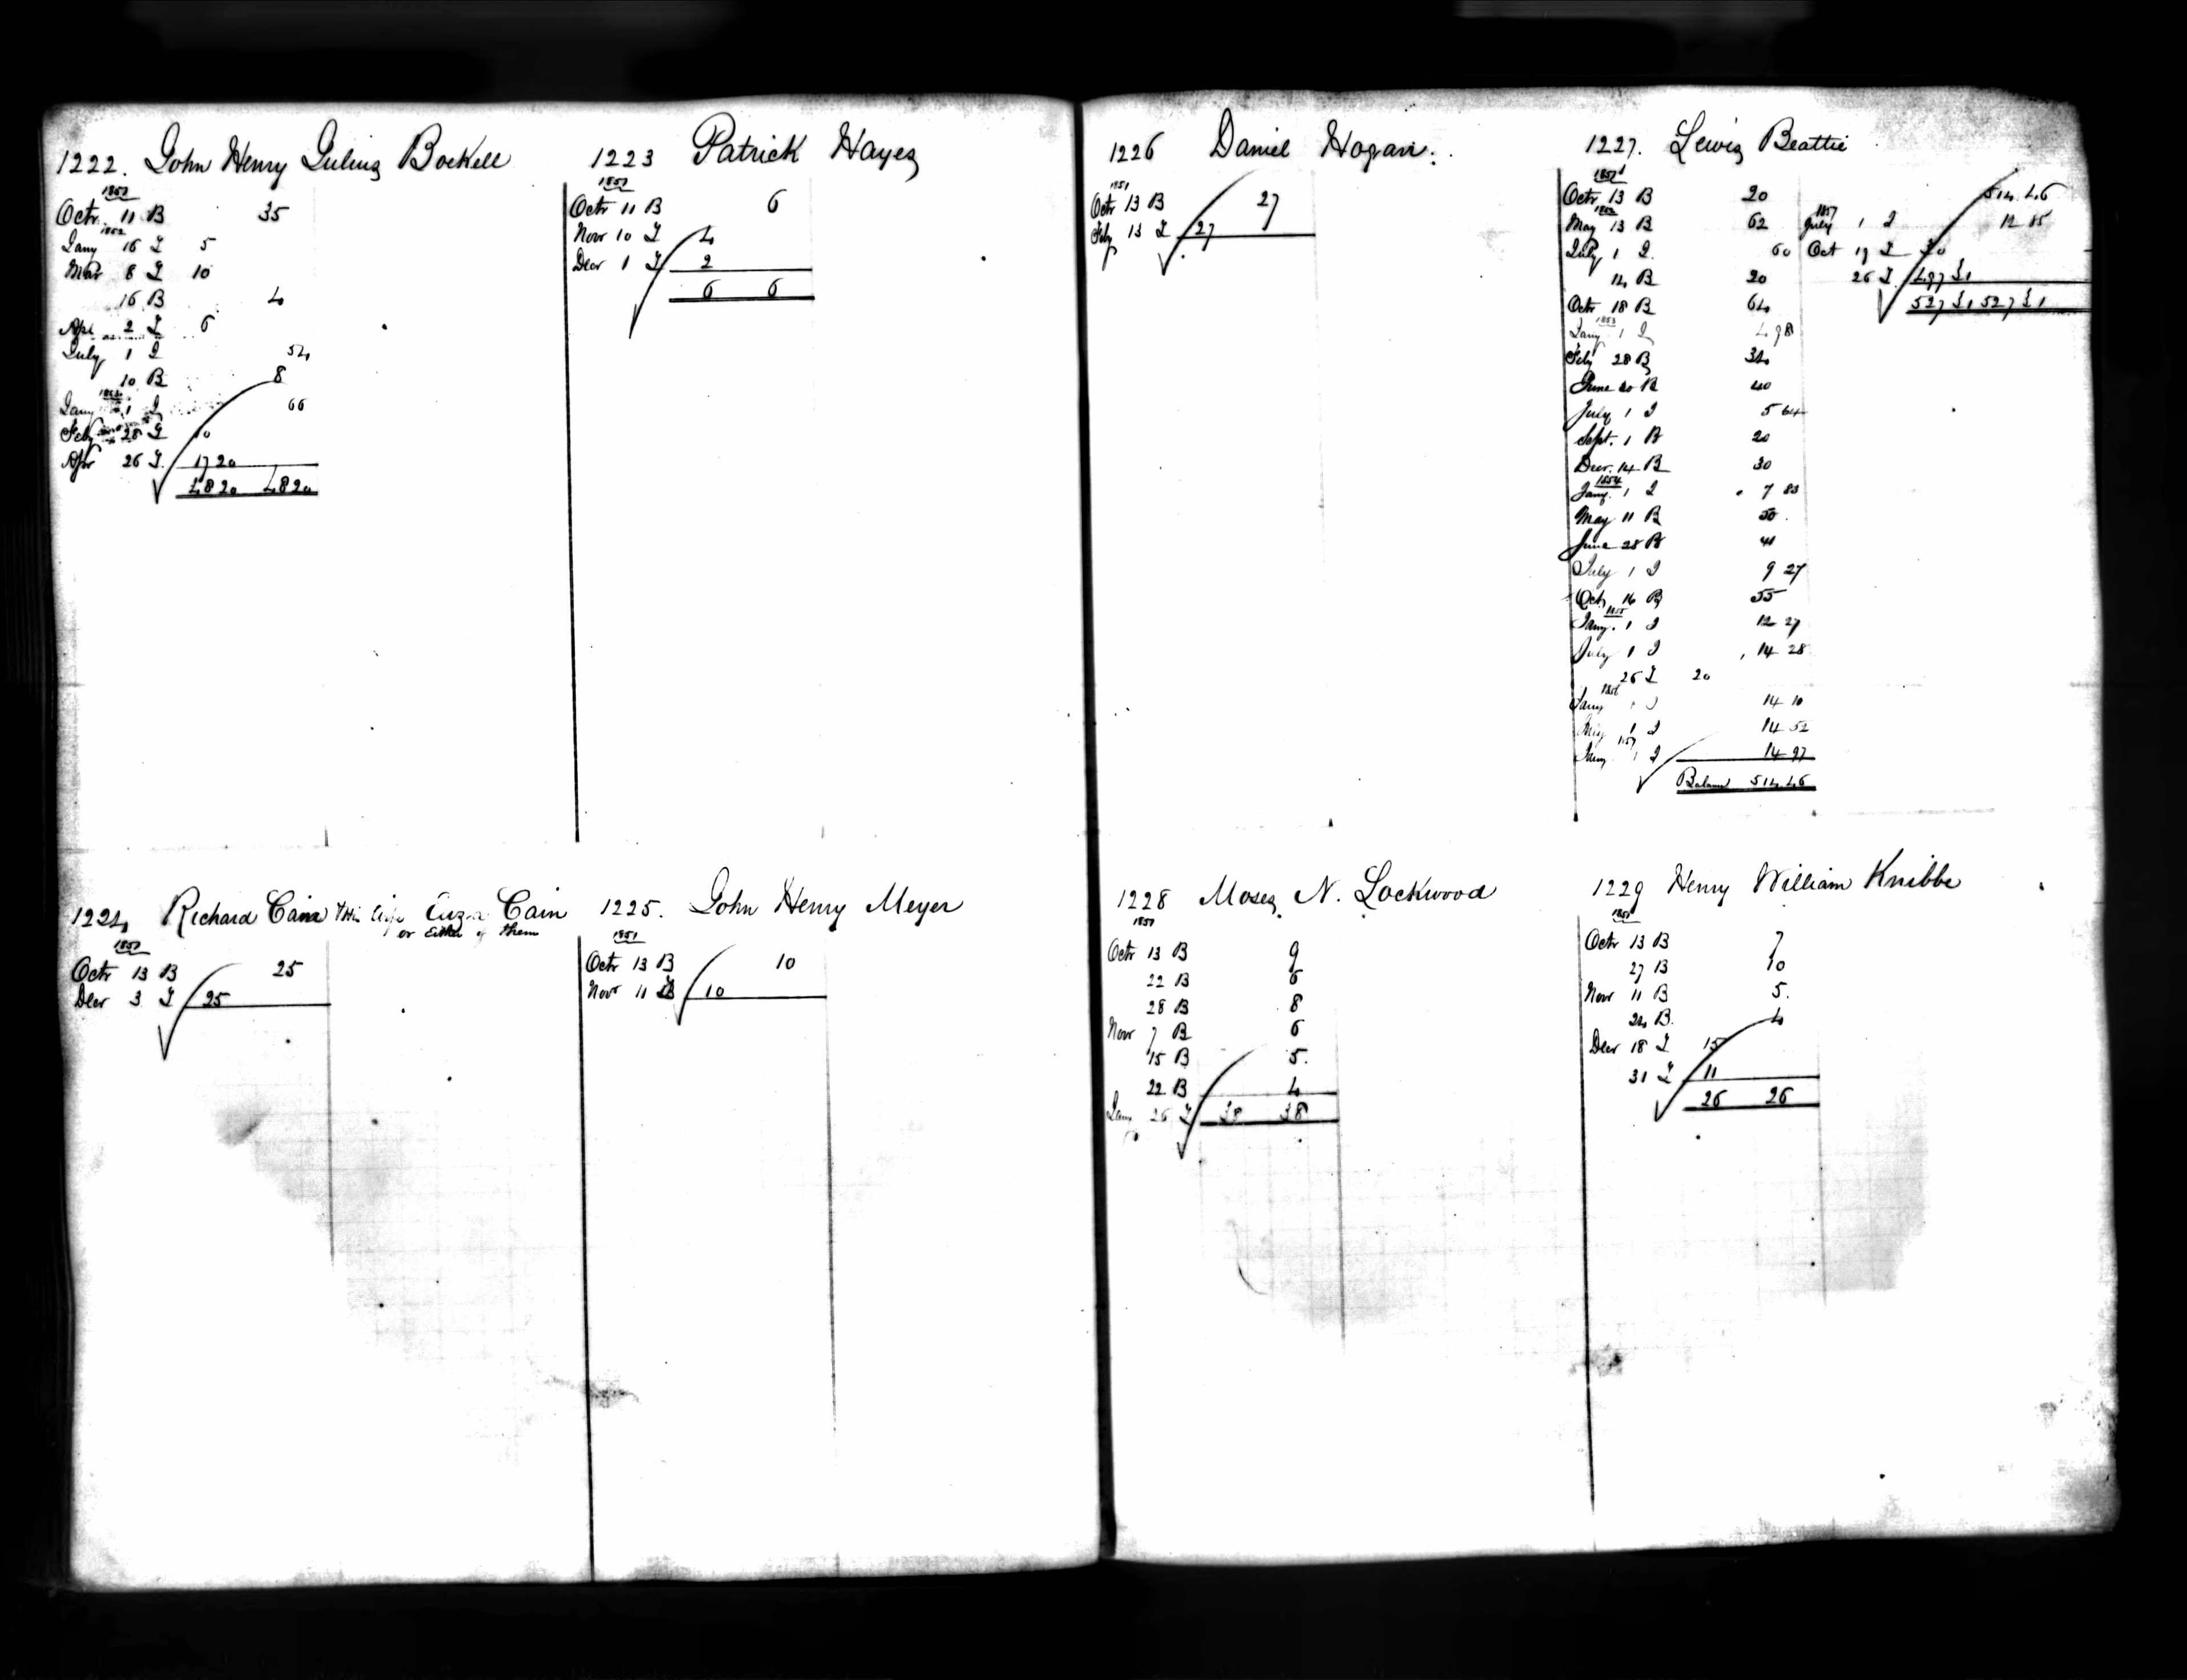 1222. John Henry Julius Bockell
1851
Octr. 11 B 35
1852
Jany 16 I 5
Mar 8 I 10
16 B 4
Apl 2 I 6
July 1 I 54
10 B 8
1853
Jany 1 I 66
Feby 28 I 10
Apr 26 I. 17 20
48 20 48 20
1223 Patrick Hayes
1851
Octr 11 B 6
Novr 10 I 4
Decr 1 I 2
6 6
1224 Richard Cain & his wife Eliza Cain
or either of them
1851
Octr 13 B 25
Decr 3 I 25
1225. John Henry Meyer
1851
Octr 13 B 10
Novr 11 10
1226 Daniel Hogan.
1851
Octr 13 B 27
Feby 13 I 27
1227. Lewis Beattie
1851
Octr 13 B 20
1852
May 13 B 62
July 1 I 60
14 B 20
Octr 18 B 64
1853
Jany 1 I 4 98
Feby 28 B 34
June 20 B 40
July 1 I 5 64
Sept. 1 B 20
Decr. 14 B 30
1854
Jany. 1 I 7 83
May 11 B 50
June 28 B 41
July 1 I 9 27
Octr 16 B 55
1855
Jany. 1 I 12 27
July 1 I 14 28
26 I 20
1856
Jany 1 I 14 10
1 I 14 52
1857
Jany 1 I 14 97
Balance 514.46
514.46
1857
July 1 I 12 85
Oct 19 I 30
26 I 497 31
527 31 527 31
1228 Moses N. Lockwood
1851
Octr 13 B 9
22 B 6
28 B 8
Novr 7 B 6
15 B 5.
22 B 4
Jany 26 I 38 38
1229 Henry William Knibbe
1851
Octr 13 B 7
27 B 10
Novr 11 B 5.
24 B. 4
Decr 18 I 15
31 I 11
26 26